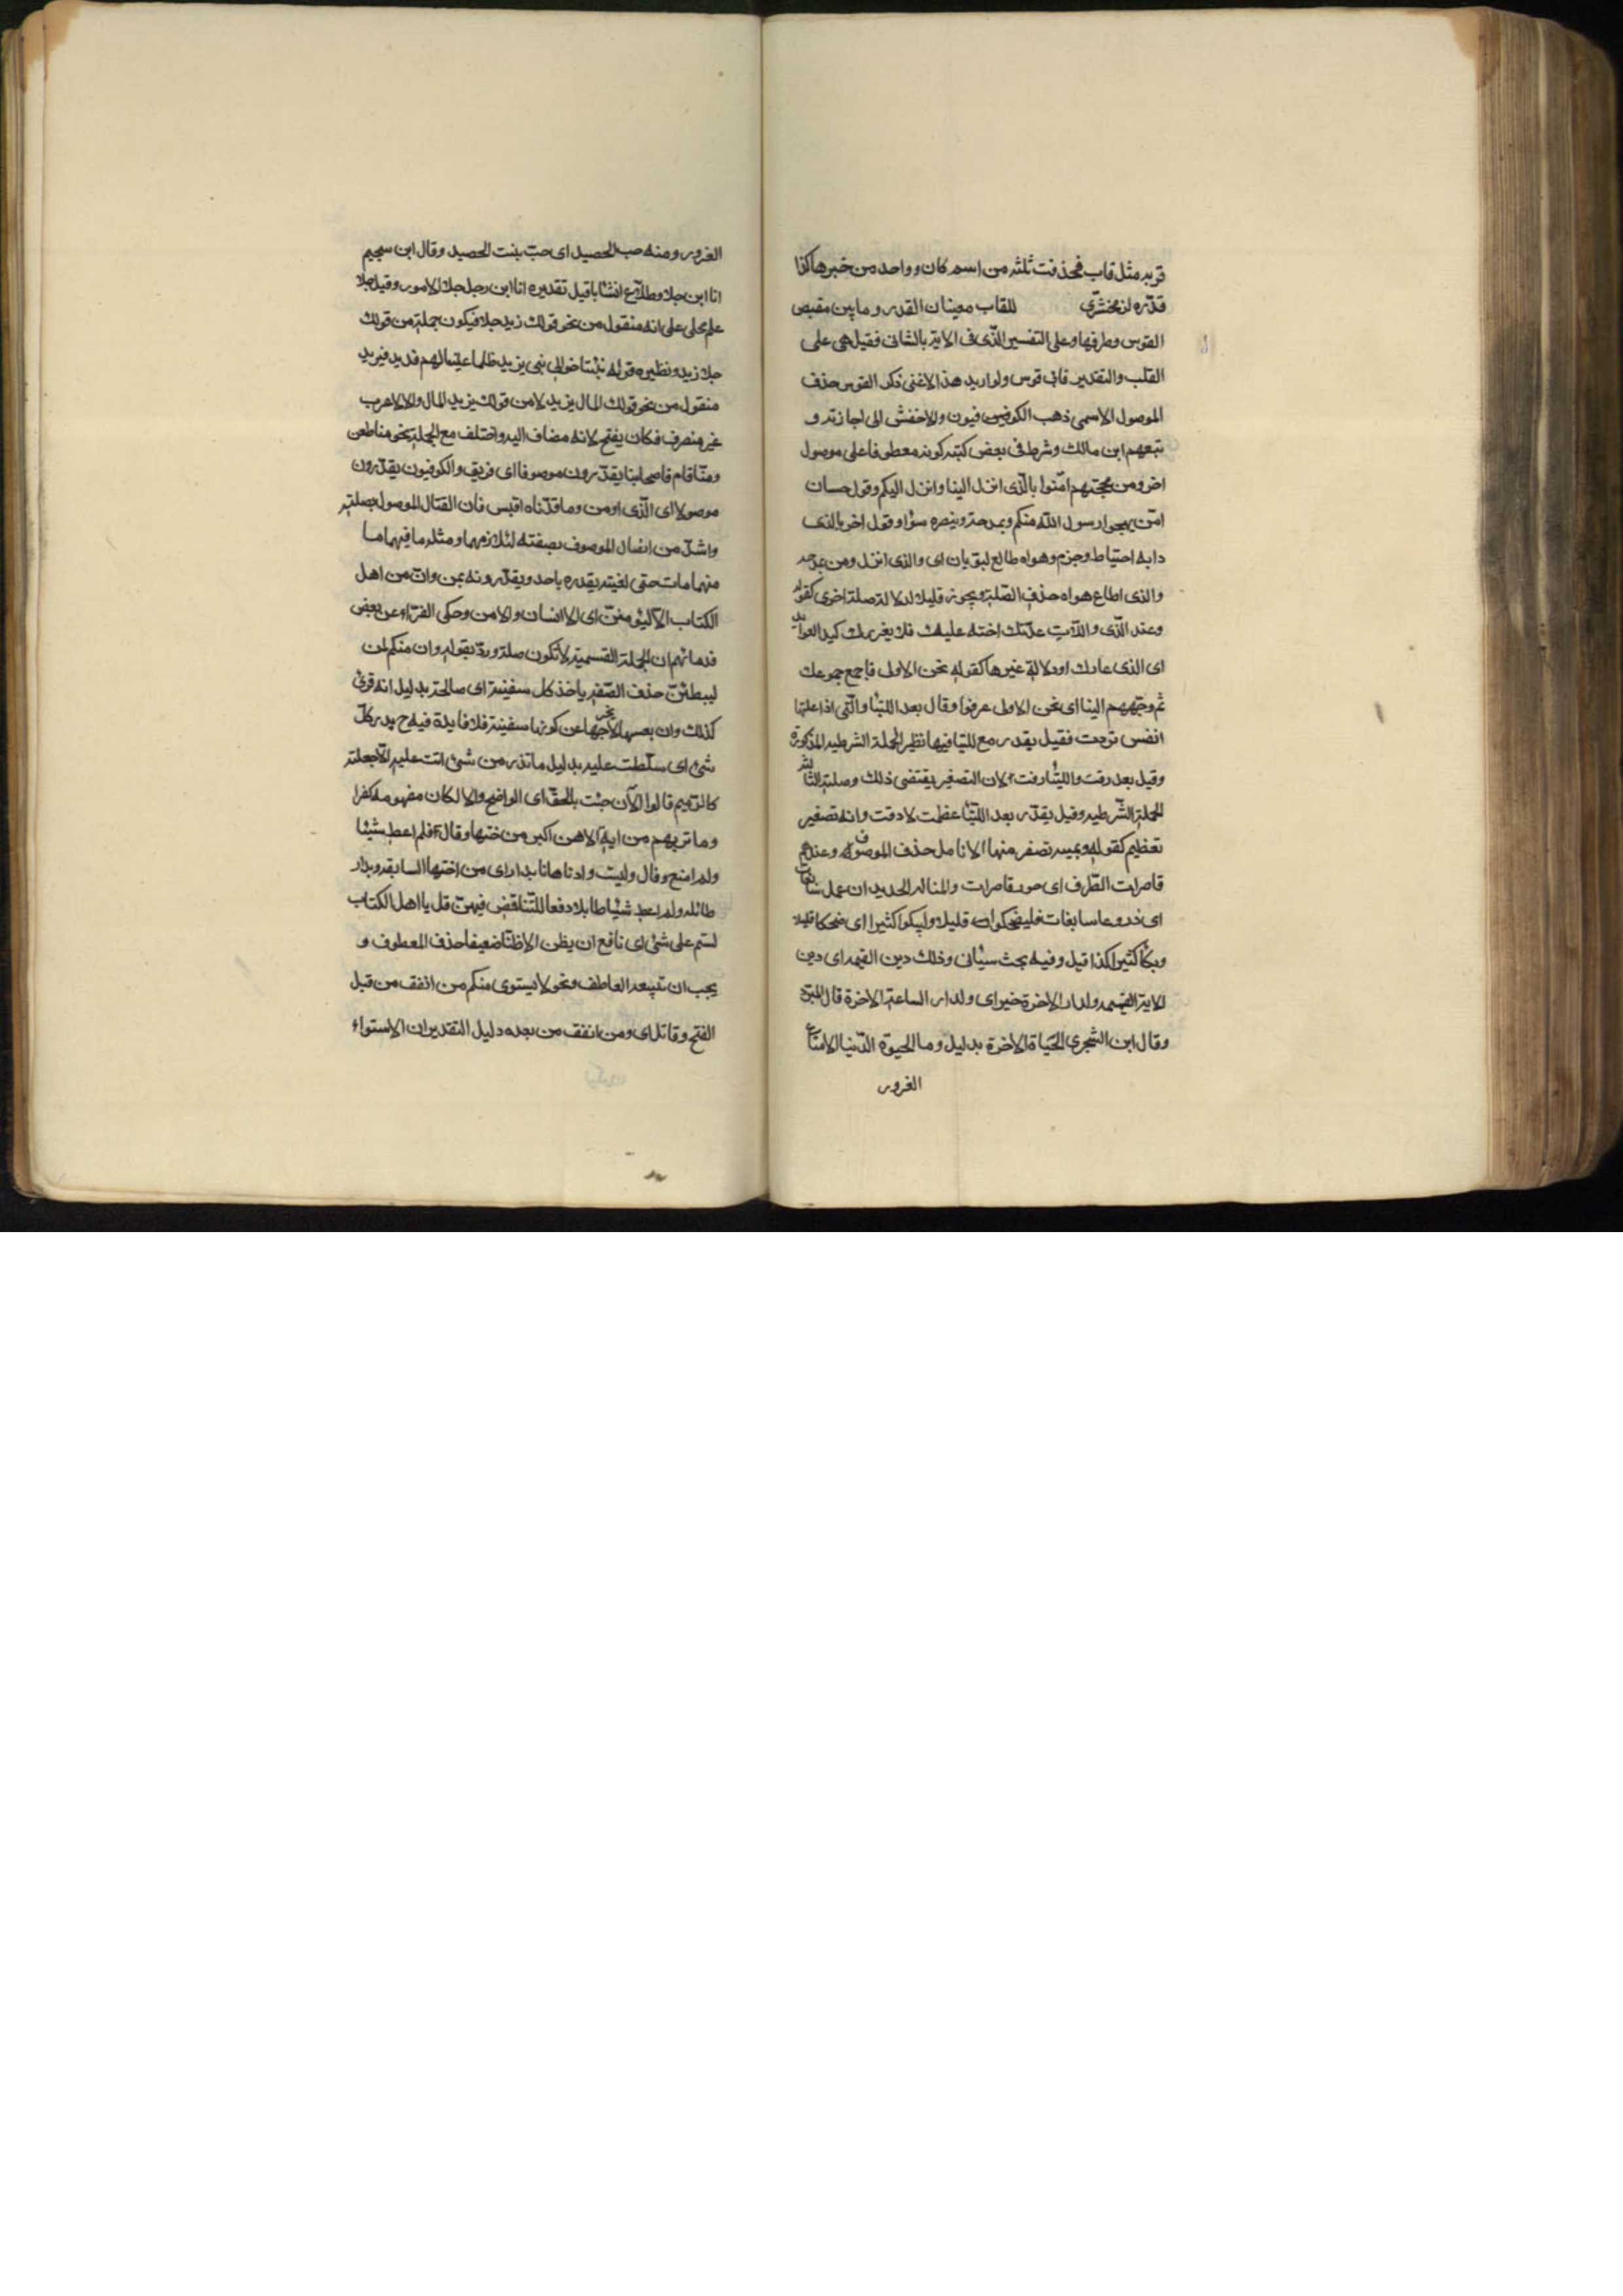 قربه مثل قاب فحذفت ثلثه من اسم كان وواحد من خبرها كذا
قدّره الزمخشرى للقاب معينان القدر وما بين مقبض
القوس وطرفها وعلى التفسير الذّى فى الاية بالشانى فقيل هى على
القلب والتقدير قابى قوس ولو اريد هذا لاغنى ذكر القوس حذف
الموصول الاسمى ذهب الكوفيون والاخفش الى اجازته و
تبعهم ابن مالك وشرط فى بعض كتبه كونه معطوفا على موصول
اخر ومن حجتهم امّنوا بالّذى انزل الينا وانزل اليكم وقول حسان
امّن يهجو رسول اللّه منكم ويمدحه وينصره سؤاء وقول اخر بالذى
دابه احتياط وجزم وهواه طالع يستويان اى والذى انزل ومن يمدحه
والذى اطاع هواه حذف الصّلة ويجوز قليلا لدلالة صلة اخرى كقوله
وعند الذّى واللّات عدّتك اختة عليك فلا يغررك كيد العوايد
اى الذى عادك او دلالة غيرها كقوله نحن الاولى فاجمع جموعك
ثم وجّههم الينا اى نحن الاولى عرفوا وقال بعد اللتيّا والّتى اذا علتها
انفس تردت فقيل يقدر مع اللتيا فيها نظير الجملة الشرطيه المذكورة
وقيل بعد رقت واللتيّا رقت لان التصغير يقتضى ذلك وصلة الثالثه
الجملة الشّرطيه وقيل يقدّر بعد اللتيّا عظمت لا دقت وانه تصغير
تعظيم كقوله دويهية تصفر منها الانامل حذف الموصوف وعندهم
قاصرات الطّرف اى حور قاصرات والنا له الحديد ان اعمل سابغات
اى دروعا سابغات فليضحكوا قليلا وليبكوا كثيرا اى ضحكا قليلا
وبكاء كثيرا كذا قيل وفيه بحث سيأتى وذلك دين القيمه اى دين
الاية القيمه ولدار الاخرة خير اى ولدار الساعة الاخرة قال المبرّد
وقال ابن الشجرى الحياة الاخرة بدليل وما الحيوة الدّنيا الا متاع
الغرور
الغرور ومنه حب الحصيد اى حبّ نبت الحصيد وقال ابن سحيم
انا ابن جلا وطلاّع الثنايا قيل تقديره انا ابن رجل جلا الامور وقيل جلا
علم محكى على انه منقول من نحو قولك زيد جلا فيكون جملة من قولك
جلا زيد ونظيره قوله نبّئت اخوالى بنى يزيد ظلما علينا لهم فديد فيزيد
منقول من نحو قولك المال يزيد لا من قولك يزيد المال والا لاعرب
غير منصرف فكان يفتح لانه مضاف اليه واختلف مع الجملة نحو منا ظعن
ومنّا اقام فاصحابنا يقدّرون موصوفا اى فريق والكوفيون يقدّرون
موصولا اى الّذى او من وما قدّرناه اقيس فان اتصال الموصول بصلته
واشدّ من اتصال الموصوف بصفته لتلازمهما ومثله ما فيهما ما
منهما مات حتى لقيته يقدره باحد ويقدّرونه بمن وانّ من اهل
الكتاب الّا ليؤمننّ اى الا انسان والا من وحكى الفرّاء عن بعض
قدمائهم ان الجملة القسميّة لا تكون صلة وردّ بقوله وان منكم لمن
ليبطئنّ حذف الصّفة ياخذ كل سفينة اى صالحة بدليل انه قرئ
كذلك وان تعييبها لا يخرجها عن كونها سفينة فلا فايدة فيه ح تدمر كلّ
شئ اى سلّطت عليه بدليل ما تذر من شئ اتت عليه الّا جعلته
كالرّميم قالوا الآن جئت بالحقّ اى الواضح والا لكان مفهومه كفرا
وما نريهم من اية الا هى اكبر من اختها وقال فلم اعط شيئا
ولم امنع وقال وليت وادناها نابدار اى من اختها السابقه وبدار
طائله ولم اعط شيئا طائلا دفعا للتّناقض فيهنّ قل يا اهل الكتاب
لستم على شئ اى نافع ان يظن الا ظنّا ضعيفا حذف المعطوف و
يجب ان تتبعه العاطف ونحو لا يستوى منكم من انفق من قبل
الفتح وقاتل اى ومن انفق من بعده دليل التقدير ان الاستواء